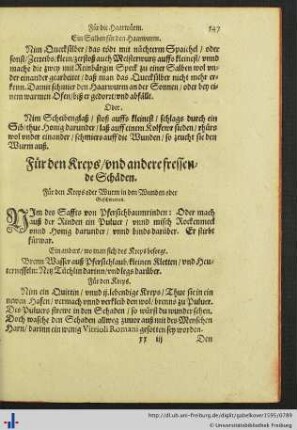 Für die Haarwürm. 347
Ein Salben für den Haarwurm.
Nim Quecksilber / das tödt mit nüchterm Spaichel / oder
sonst / Zerreibs klein / zerstoß auch Meisterwurtz auffs kleinest / vnnd
mache die zwey mit Reinbärgin Speck zu einer Salben wol vn-
der einander gearbaitet / daß man das Quecksilber nicht mehr er-
kenn. Damit schmier den Haarwurm an der Sonnen / oder bey ei-
nem warmen Ofen / biß er gedorrt vnd abfälle.
Oder.
Nim Scheibenglaß / stoß auffs kleinest / schlags durch ein
Honig darunder / laß auff einem Kolfewr sieden / rhürs
wol vnder einander / schmiers auff die Wunden / so zeucht sie den
Wurm auß.
Für den Kreps / vnd andere fressen-
de Schäden.
Für den Kreps oder Wurm in den Wunden oder
Geschweren.
NIm des Saffts von Pfersichbaumrinden: Oder mach
auß der Rinden ein Puluer / vnnd misch Rockenmeel
vnnd Honig darunder / vnnd binds darüber. Er stirbt
fürwar.
Ein anders / wo man sich des Kreps besorgt.
Brenn Wasser auß Pfersichlaub / kleinen Kletten / vnd Hei-
ternesseln: Netz Tüchlin darinn / vnd legs darüber.
Für den Kreps.
Nim ein Quintin / vnnd lebendige Kreps / Thue sie in ein
newen Hafen / vermach vnnd verkleib den wol / brenns zu Puluer.
Des Puluers strewe in den Schaden / so würst du wunder sehen.
Doch wasche den Schaden allweg zuuor auß mit des Menschen
Harn / darinn ein wenig Vitrioli Romani gesotten sey worden.
xx iij Den
http://dl.ub.uni-freiburg.de/diglit/gabelkover1595/0789
© Universitätsbibliothek Freiburg